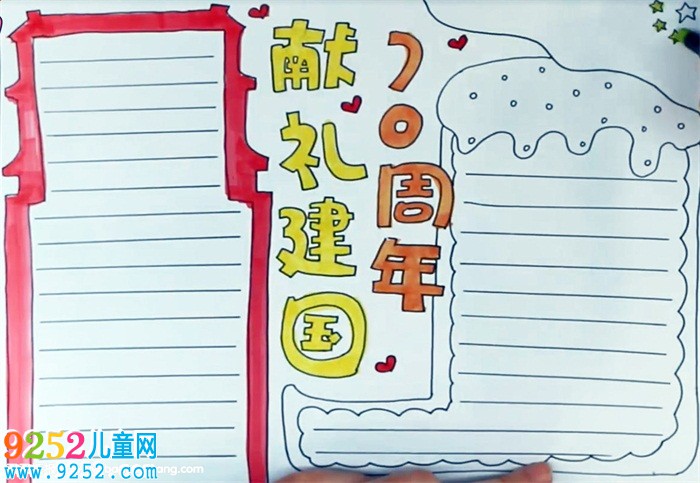 献礼建国
70周年
9252儿童网
www.9252.com